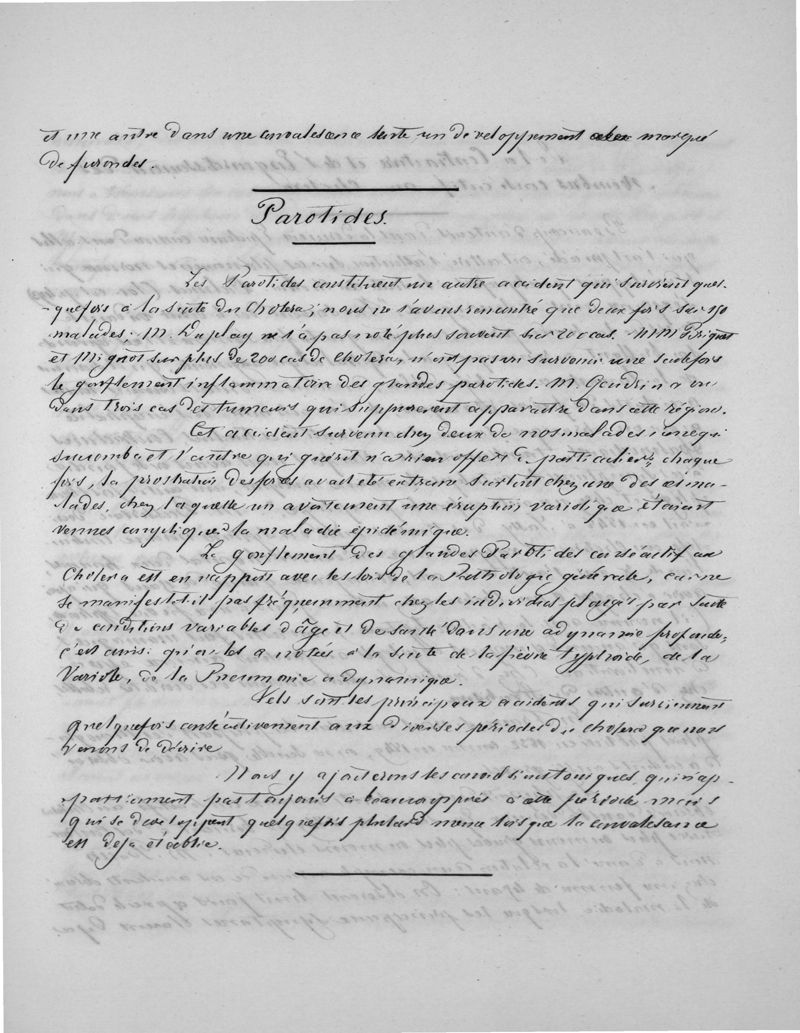 et une autre dans une convalescence lente un développement assez marqué
de furoncles.
Parotides.
Les Parotides constituent un autre accident qui survient quel-
-quefois à la suite du Cholera; nous ne l'avons rencontré que deux fois sur 150
malades; M. Duplay ne l'a pas noté plus souvent sur 200 cas. MM Briquet
et Mignot sur plus de 200 cas de Cholera, n'ont pas vu survenir une seule fois
le gonflement inflammatoire des glandes parotides. M. Gendrin a vu
dans trois cas des tumeurs qui suppurerent apparaitre dans cette région.
Cet accident survenu chez deux de nos malades l'une qui
succomba et l'autre qui guérit n'a rien offert de particulier; chaque
fois, la prostration des forces avait été extrème surtout chez une des ma-
lades, chez laquelle un avortement une éruption variolique étaient
venues compliquer la maladie épidémique.
Le gonflement des glandes Parotides consécutif au
Cholera est en rapport avec les lois de la Pathologie générale, car ne
se manifeste t il pas fréquemment chez les individus plongés par suite
de conditions variables d'âge et de santé dans une adynamie profonde;
c'est ainsi qu'on les a notées à la suite de la fièvre typhoide, de la
Variole, de la Pneumonie adynamique.
Tels sont les principaux accidents qui surviennent
quelquefois consécutivement aux diverses périodes du cholera que nous
venons de décrire
Nous y ajouterons les qui n'ap-
-partiennent pas toujours à beaucoup près à cette période mais
qui se developpent quelquefois plus tard même lorsque la convalescence
est deja établie.